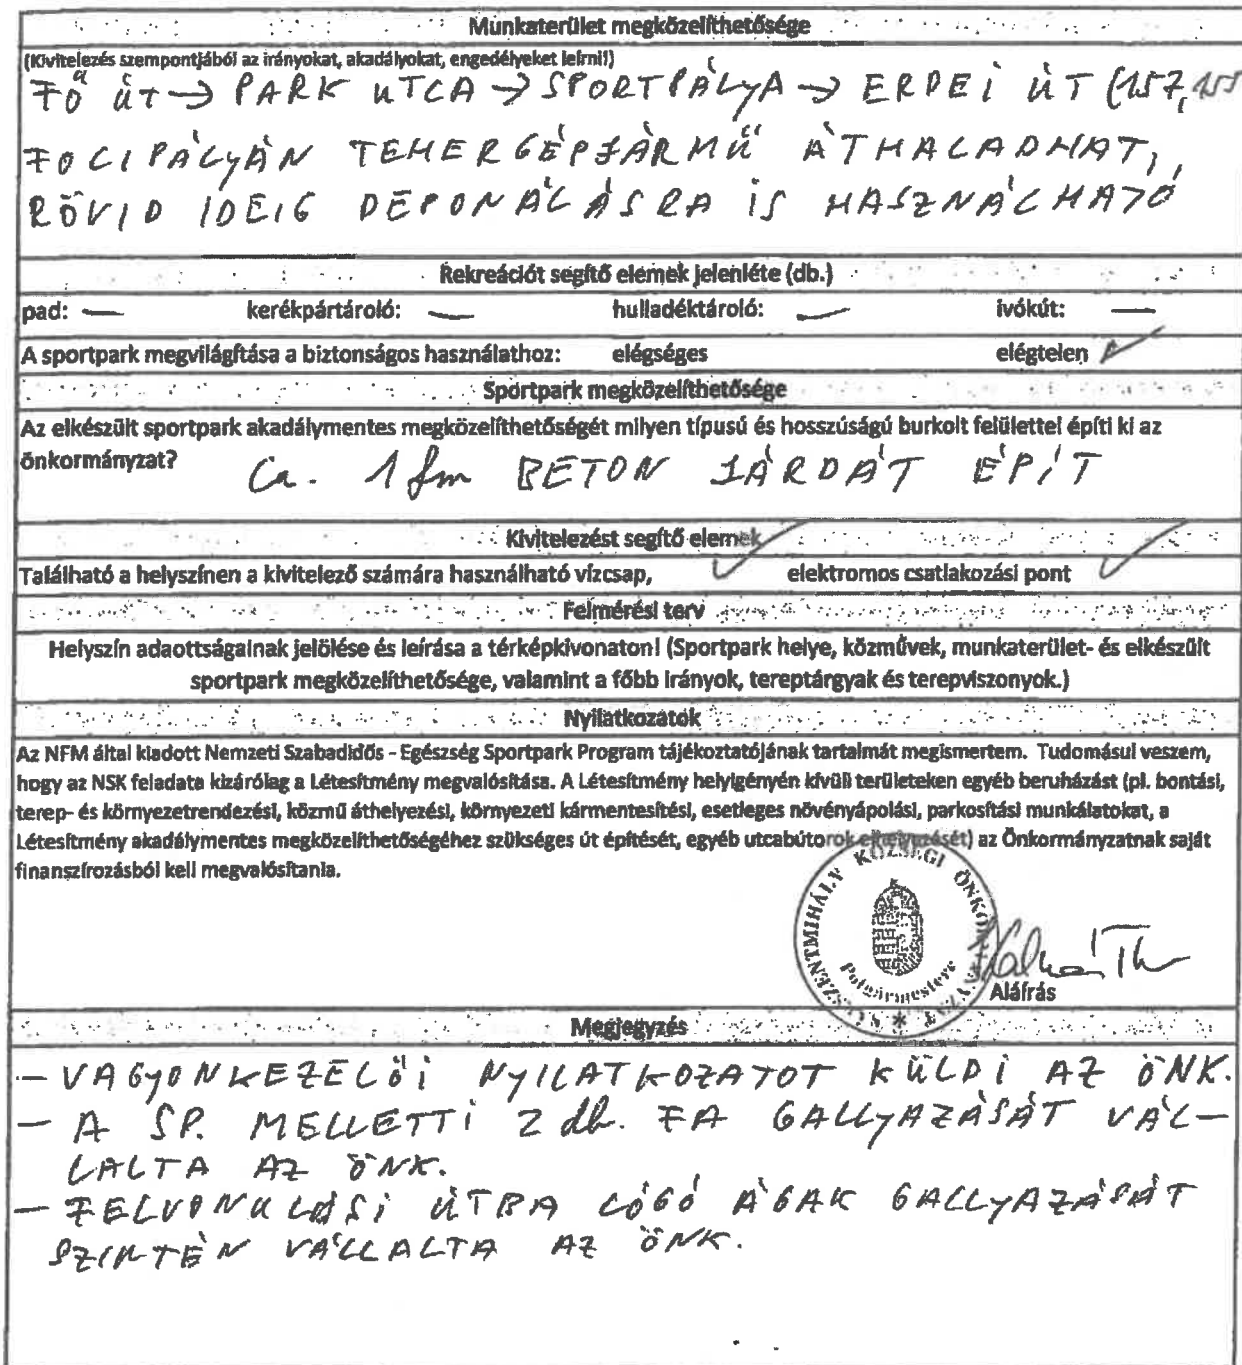 Munkaterület megközelíthetősége
(Kivitelezés szempontjából az irányokat, akadályokat, engedélyeket leírni!)
FŐ ÚT → PARK UTCA → SPORTPÁLYA → ERDEI ÚT (157,
FOCIPÁLYÁN TEHERGÉPJÁRMŰ ÁTHALADHAT,
RÖVID IDEIG DEPONÁLÁSRA IS HASZNÁLHATÓ
Rekreációt segítő elemek jelenléte (db.)
pad: — kerékpártároló: — hulladéktároló: — ivókút: —
A sportpark megvilágítása a biztonságos használathoz: elégséges elégtelen ✓
Sportpark megközelíthetősége
Az elkészült sportpark akadálymentes megközelíthetőségét milyen típusú és hosszúságú burkolt felülettel építi ki az
önkormányzat?
Ca. 1 fm BETON JÁRDÁT ÉPÍT
Kivitelezést segítő elemek
Található a helyszínen a kivitelező számára használható vízcsap, ✓ elektromos csatlakozási pont ✓
Felmérési terv
Helyszín adaottságainak jelölése és leírása a térképkivonaton! (Sportpark helye, közművek, munkaterület- és elkészült
sportpark megközelíthetősége, valamint a főbb irányok, tereptárgyak és terepviszonyok.)
Nyilatkozatok
Az NFM által kiadott Nemzeti Szabadidős - Egészség Sportpark Program tájékoztatójának tartalmát megismertem. Tudomásul veszem,
hogy az NSK feladata kizárólag a Létesítmény megvalósítása. A Létesítmény helyigényén kívüli területeken egyéb beruházást (pl. bontási,
terep- és környezetrendezési, közmű áthelyezési, környezeti kármentesítési, esetleges növényápolási, parkosítási munkálatokat, a
Létesítmény akadálymentes megközelíthetőségéhez szükséges út építését, egyéb utcabútorok elhelyezését) az Önkormányzatnak saját
finanszírozásból kell megvalósítania.
KÖZSÉGI
Polgármestere
Aláírás
Megjegyzés
- VAGYONKEZELŐI NYILATKOZATOT KÜLDI AZ ÖNK.
- A SP. MELLETTI 2 db. FA GALLYAZÁSÁT VÁL-
LALTA AZ ÖNK.
- FELVONULÁSI ÚTBA LÓGÓ ÁGAK GALLYAZÁSÁT
SZINTÉN VÁLLALTA AZ ÖNK.